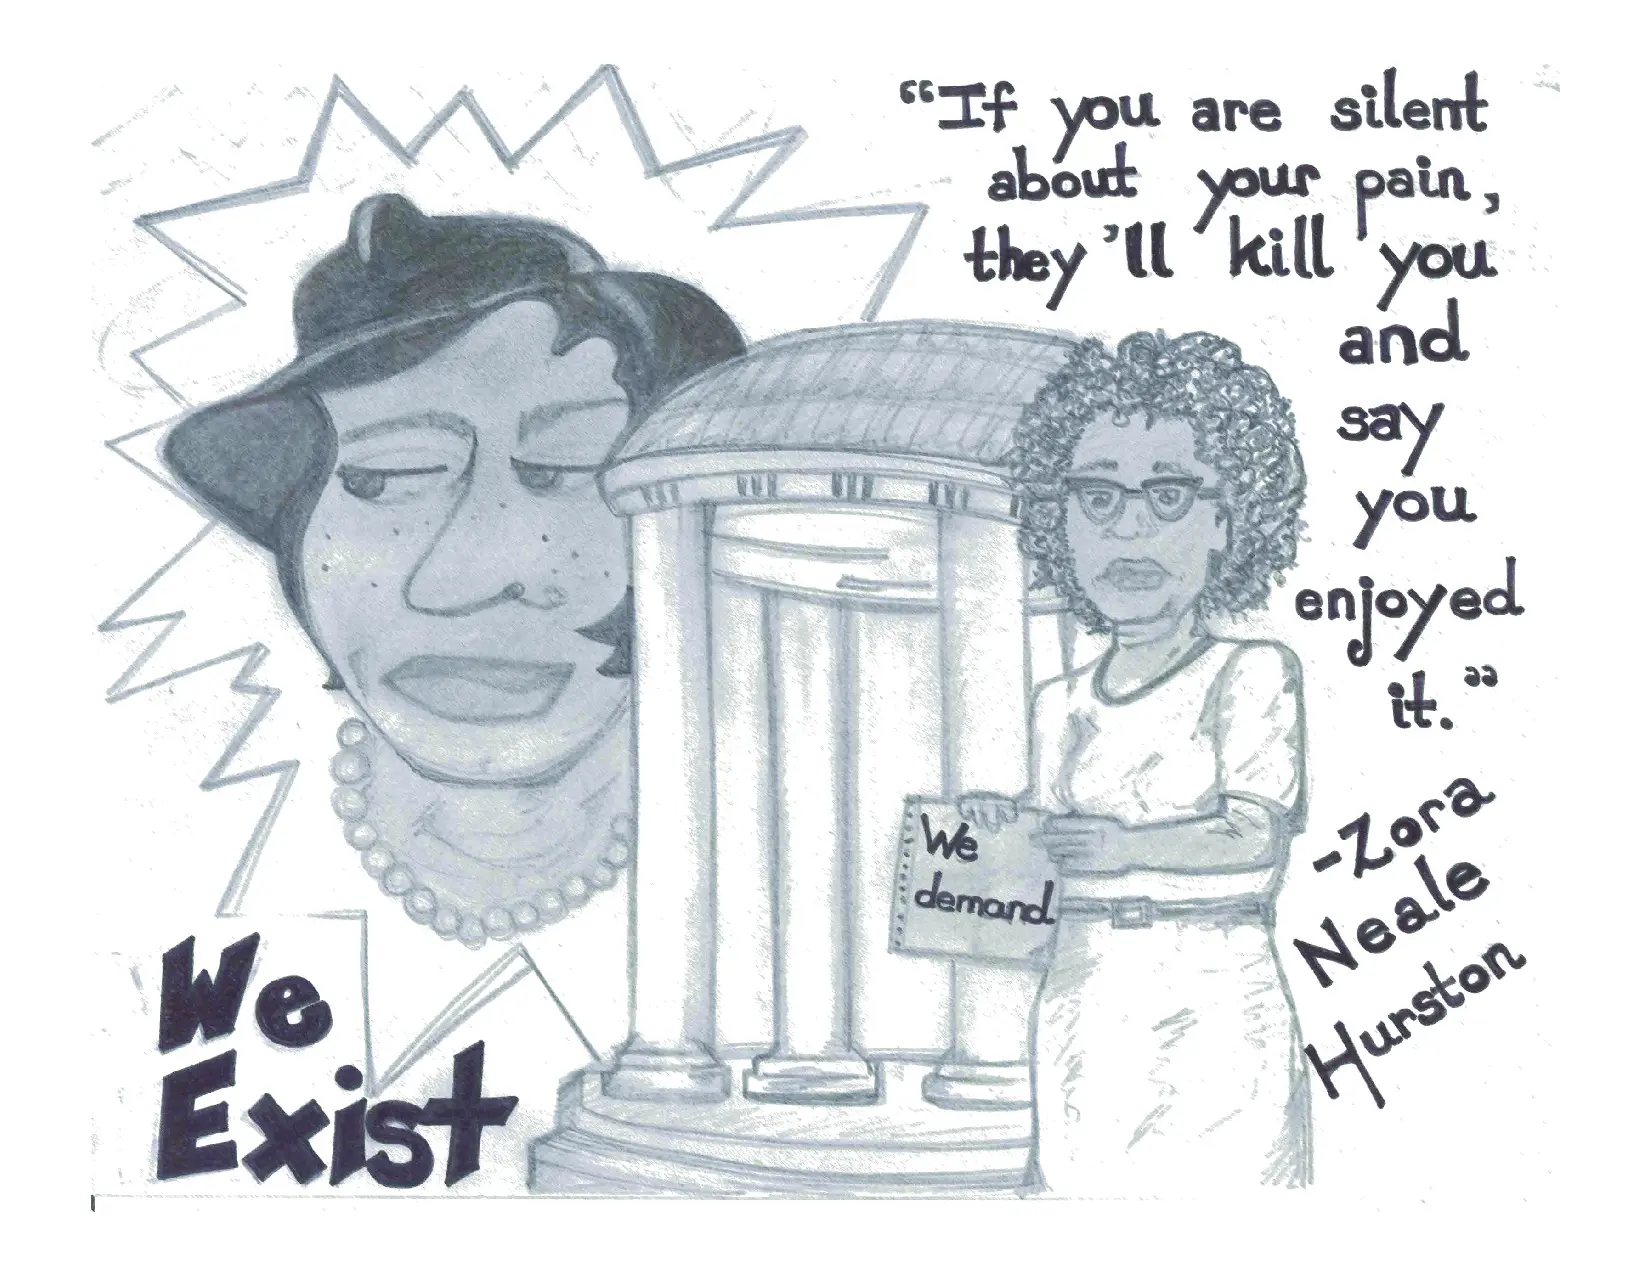 “If you are silent
about your pain,
they’ll kill you
and
say
you
enjoyed
it.”
-Zora
Neale
Hurston
We
demand
We
Exist